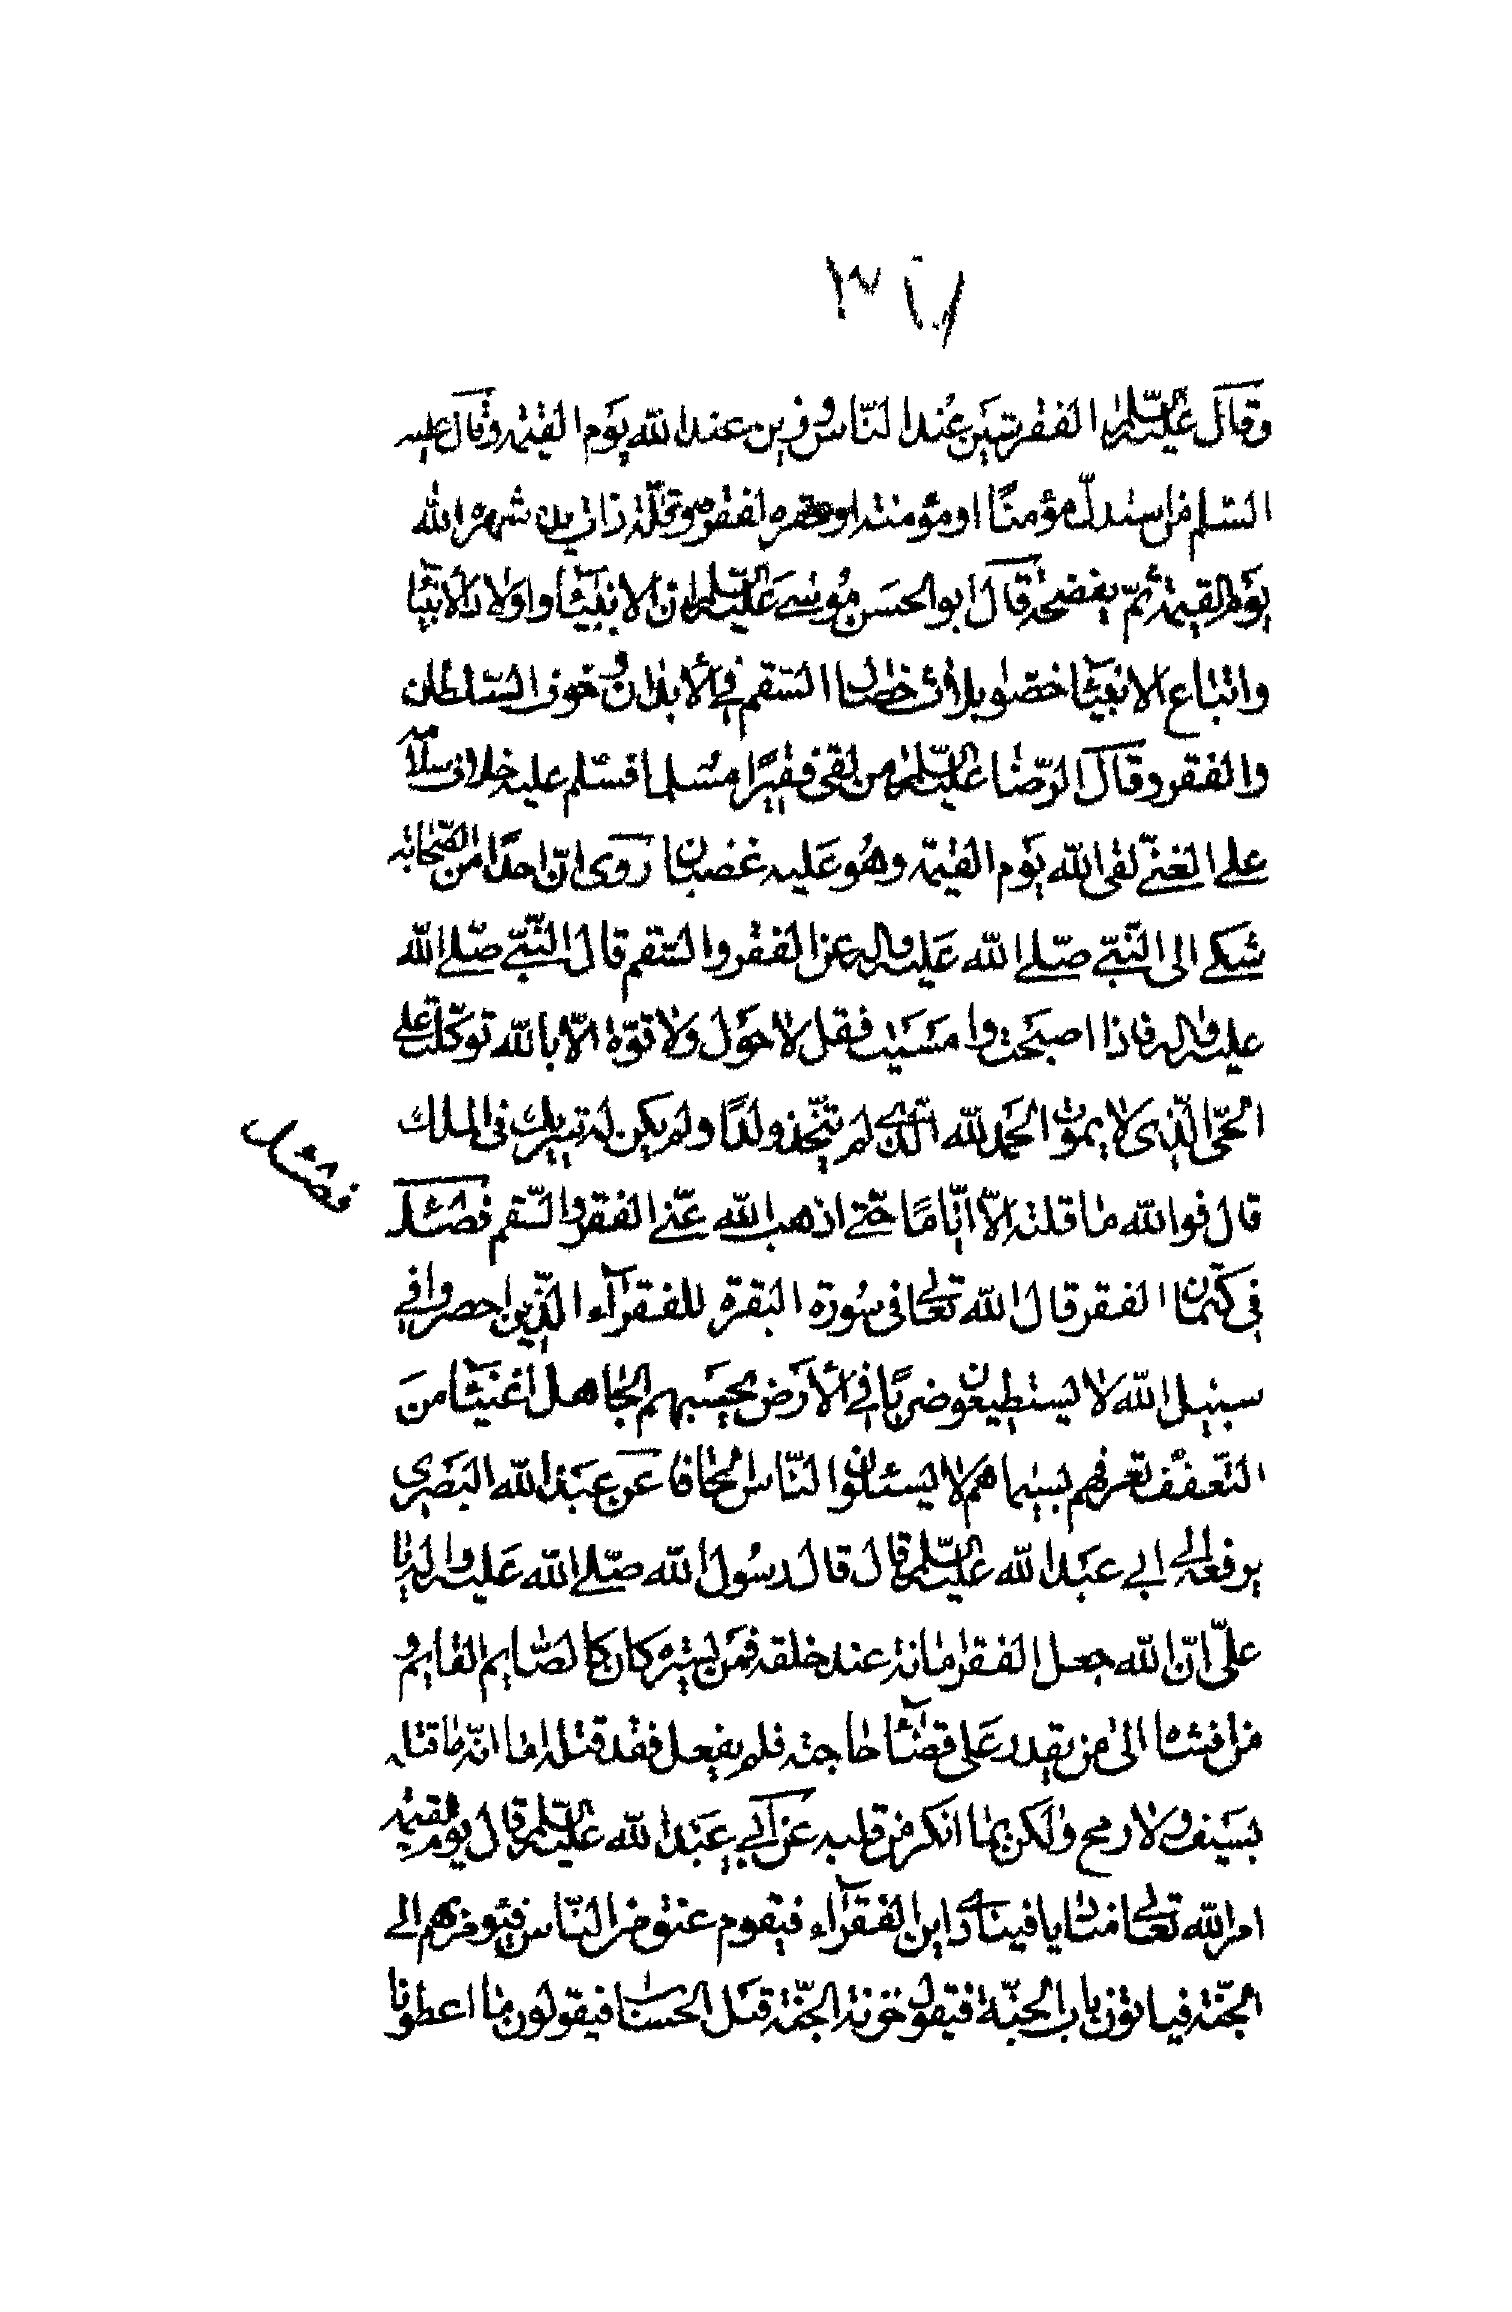 وقال عليه السلم الفقر شين عند الناس وزين عند الله يوم القيمة وقال عليه
السلم من استدل مؤمنا او مؤمنة او حقره لفقره وقلة ذات يده شهره الله
يوم القيمة ثم يفضحه قال ابو الحسن موسى عليه السلم ان الانبيآء واولاد الانبيآء
واتباع الانبيآء خصوا بثلاث خصال السقم في الابدان وخوف السلطان
والفقر وقال الرضا عليه السلم من لقى فقيرا مسلما فسلم عليه خلاف سلامه
على الغني لقى الله يوم القيمة وهو عليه غضبان روى ان احدا من الصحابة
شكى الى النبي صلى الله عليه واله عن الفقر والسقم قال النبي صلى الله
عليه واله فاذا اصبحت وامسيت فقل لا حول ولا قوة الا بالله توكلت على
الحي الذي لا يموت الحمد لله الذي لم يتخذ ولدا ولم يكن له شريك فى الملك
قال فوالله ما قلته الا اياما حتى اذهب الله عني الفقر والسقم فصل
فصل
في كتمان الفقر قال الله تعالى فى سورة البقرة للفقرآء الذين احصروا في
سبيل الله لا يستطيعون ضربا في الارض يحسبهم الجاهل اغنيآء من
التعفف تعرفهم بسيماهم لا يسئلون الناس الحافا عن عبد الله البصرى
يرفعه الى ابي عبد الله عليه السلم قال قال رسول الله صلى الله عليه واله يا
على ان الله جعل الفقر امانة عند خلقه فمن يستره كان كالصايم القايم و
من افشاه الى من يقدر على قضآء حاجته فلم يفعل فقد قتله اما انه ما قتله
بسيف ولا رمح ولكن بما انكر من قلبه عن ابي عبد الله عليه السلم قال يوم القيمة
امر الله تعالى مناديا فينادى اين الفقرآء فيقوم عنق من الناس فيؤمر بهم الى
الجنة فياتون باب الجنة فيقول خزنة الجنة قبل الحساب فيقولون ما اعطونا